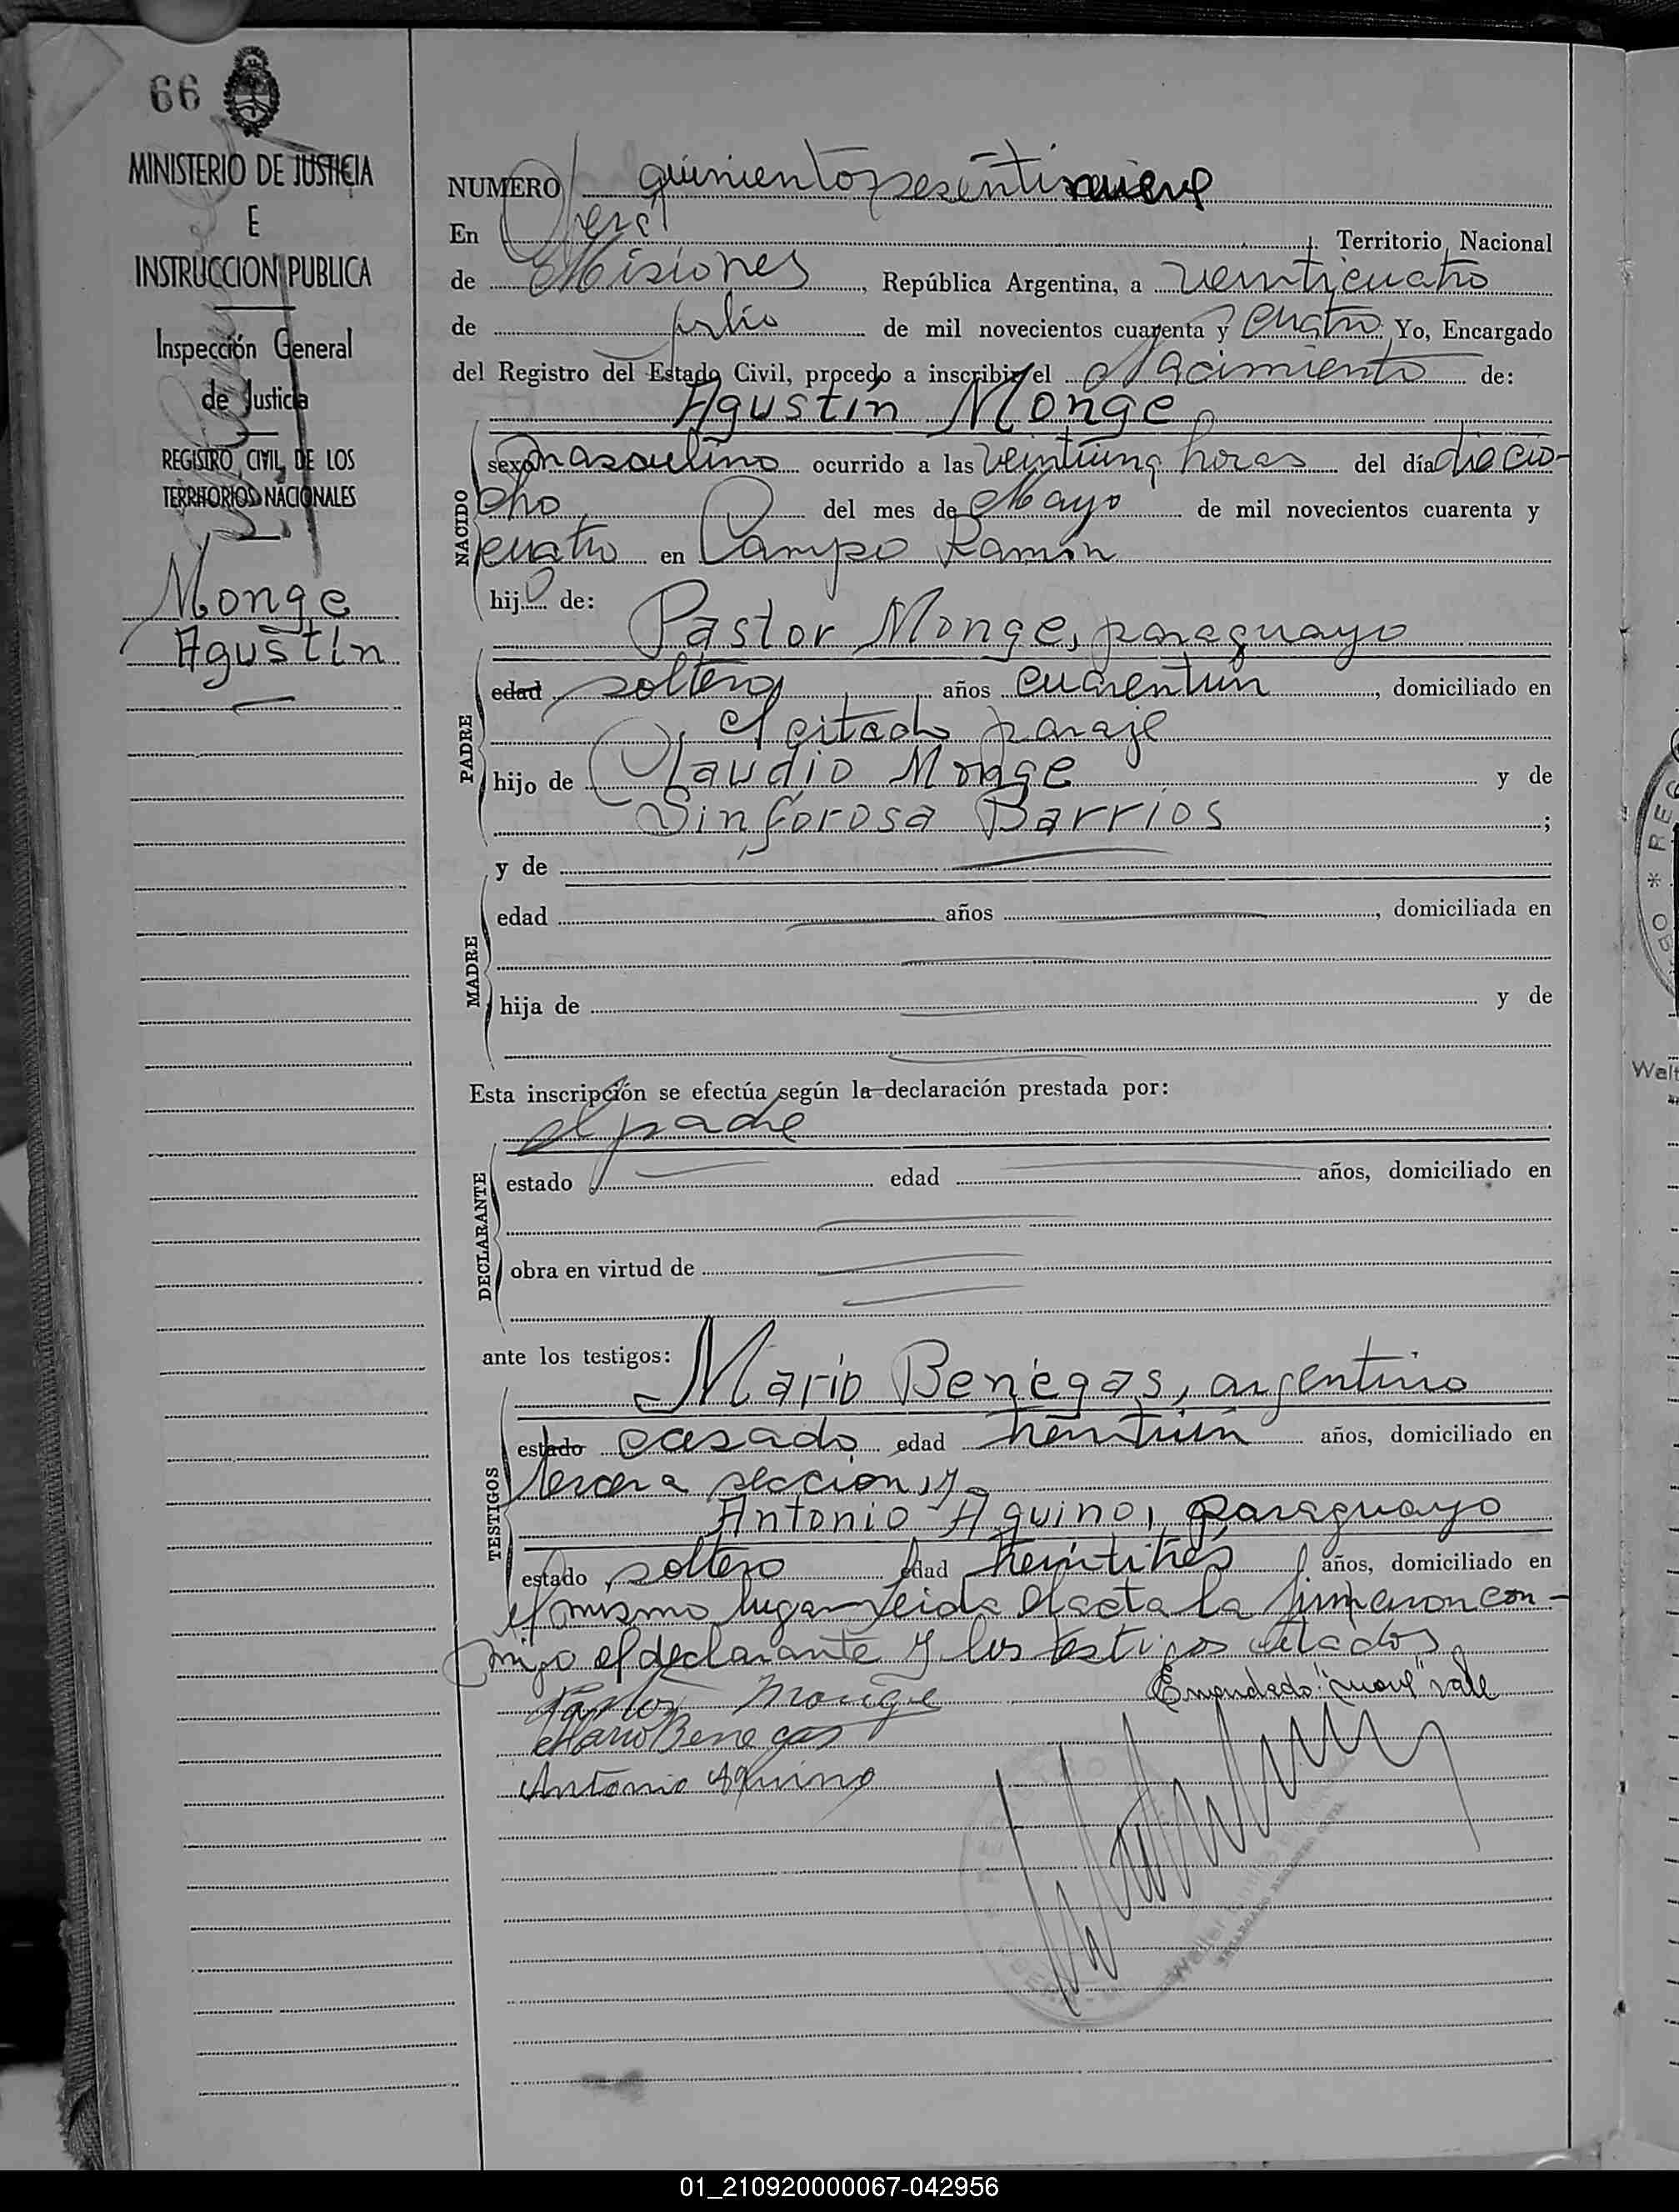 66
MINISTERIO DE JUSTICIA
E
INSTRUCCION PUBLICA
Inspección General
de Justicia
REGISTRO CIVIL DE LOS
TERRITORIOS NACIONALES
Monge
Agustín
NUMERO quinientos sesentinueve
En Oberá Territorio Nacional
de Misiones, República Argentina, a veinticuatro
de julio de mil novecientos cuarenta y cuatro Yo, Encargado
del Registro del Estado Civil, procedo a inscribir el Nacimiento de:
Agustín Monge
NACIDO
sexo masculino ocurrido a las veintiuna horas del día diecio-
cho del mes de Mayo de mil novecientos cuarenta y
cuatro en Campo Ramón
hijo de:
Pastor Monge, paraguayo
PADRE
edad soltero, años cuarentiún, domiciliado en
el citado paraje
hijo de Claudio Monge y de
Sinforosa Barrios ;
y de
MADRE
edad años , domiciliada en
hija de y de
Esta inscripción se efectúa según la declaración prestada por:
el padre
DECLARANTE
estado edad años, domiciliado en
obra en virtud de
ante los testigos:
Mario Benégas, argentino
TESTIGOS
estado casado edad treintiún años, domiciliado en
tercera sección, y
Antonio Aquino, paraguayo
estado soltero edad treintitrés años, domiciliado en
el mismo lugar Leida el acta la firmaron con-
migo el declarante y los testigos citados
Pastor Monige
Emendado: "nueve" vale
Mario Benegas
Antonio Aquino
Walt
01_210920000067-042956